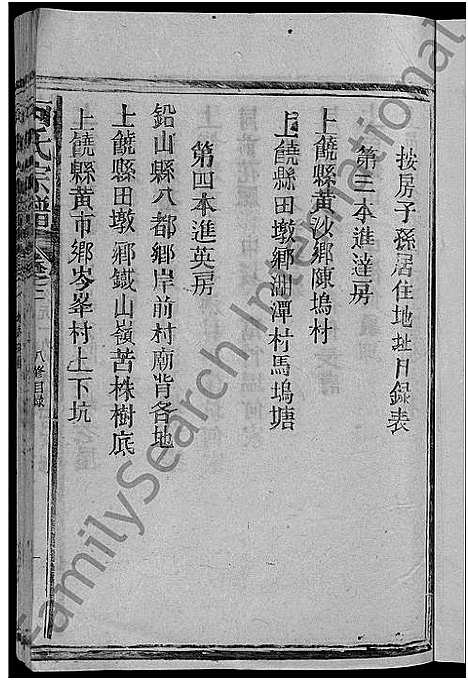 按房子孫居住地址目錄表
第三本進達房
上饒縣黃沙鄉陳塢村
上饒縣田墩鄉湖潭村馬塢塘
第四本進英房
鉛山縣八都鄉岸前村廟背各地
上饒縣田墩鄉鐵山嶺苦株樹底
上饒縣黃市鄉岑峯村上下坑
氏宗譜
八修目錄
一
FamilySearch International